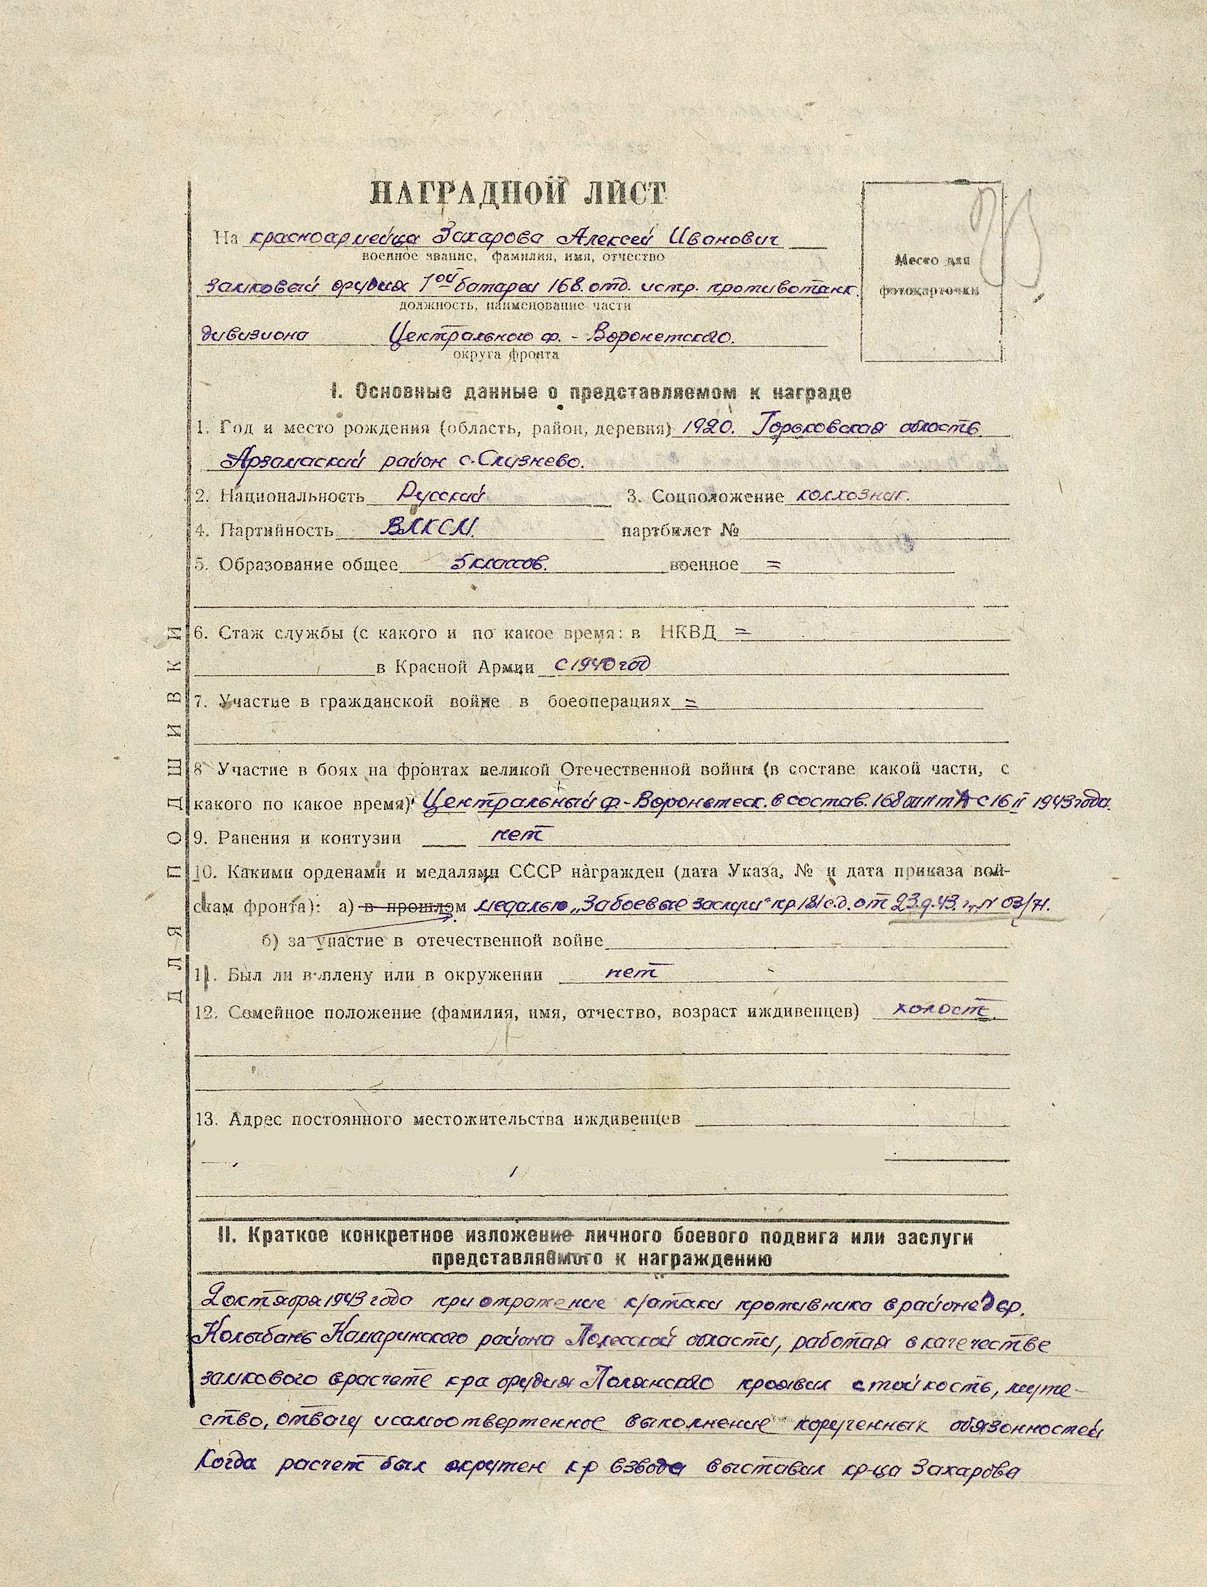 НАГРАДНОЙ ЛИСТ
На красноармейца Захарова Алексей Иванович
военное звание, фамилия, имя, отчество
Место для
фотокарточки
замковый орудия 1ой батареи 168. отд. истр. противотанк.
должность, наименование части
дивизиона Центрального ф. - Воронетского.
округа фронта
I. Основные данные о представляемом к награде
1. Год и место рождения (область, район, деревня) 1920. Горьковская область
Арзамаский район с. Слизнево.
2. Национальность Русский 3. Соцположение колхозник.
4. Партийность ВЛКСМ. партбилет №
5. Образование общее 5 классов. военное =
6. Стаж службы (с какого и по какое время: в НКВД =
в Красной Армии с 1940 год
7. Участие в гражданской войне в боеоперациях =
8 Участие в боях на фронтах великой Отечественной войны (в составе какой части, с
какого по какое время) Центральный ф. - Воронетск. в состав. 168 с 16 II 1943 года.
9. Ранения и контузии нет
10. Какими орденами и медалями СССР награжден (дата Указа, № и дата приказа вой-
скам фронта): а) в прошлом медалью „За боевые заслуги" пр 181 с.д. от 23.9.43. г. N 03/71.
б) за участие в отечественной войне
11. Был ли в плену или в окружении нет
12. Семейное положение (фамилия, имя, отчество, возраст иждивенцев) холост.
13. Адрес постоянного местожительства иждивенцев
ДЛЯ ПОДШИВКИ
II. Краткое конкретное изложение личного боевого подвига или заслуги
представляемого к награждению
2 октября 1943 года при отражение к/атаки противника в районе дер.
Колыбань Камаринского района Полесской области, работая в качестве
замкового в расчете к-ра орудия Полянского проявил стойкость, муже-
ство, отвагу и самоотверженное выполнение порученных обязонностей
Когда расчет был окружен к-р взвода выставил кр-ца Захарова